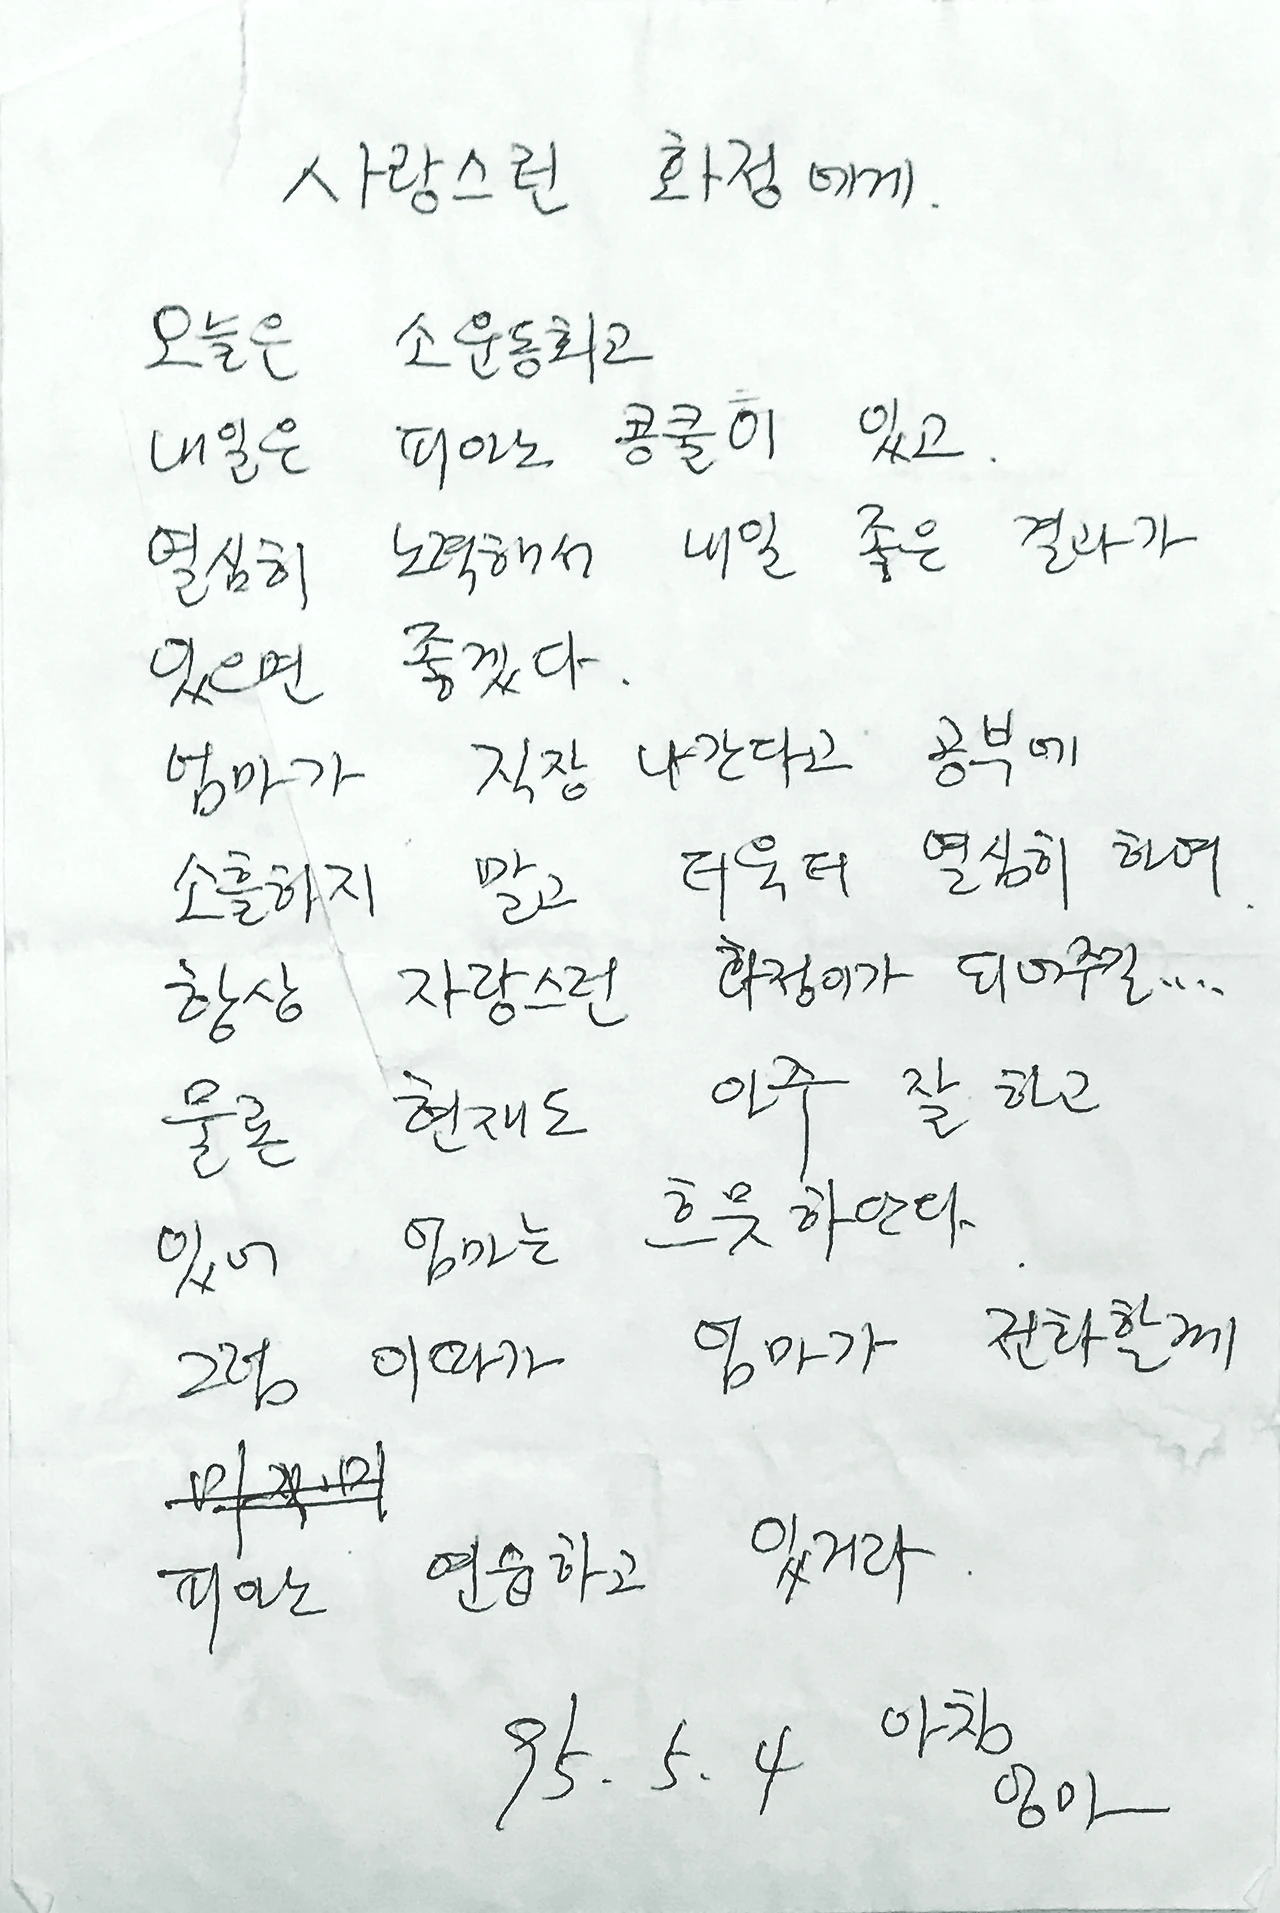 사랑스런 화정에게.
오늘은 소운동회고
내일은 피아노 콩쿨히 있고.
열심히 노력해서 내일 좋은 결과가
있으면 좋겠다.
엄마가 직장 나간다고 공부에
소흘하지 말고 더욱더 열심히 하여.
항상 자랑스런 화정이가 되어주길....
물론 현재도 아주 잘 하고
있어 엄마는 흐믓하단다.
그럼 이따가 엄마가 전화할께
피아노 연습하고 있거라.
95. 5. 4 아침
엄마